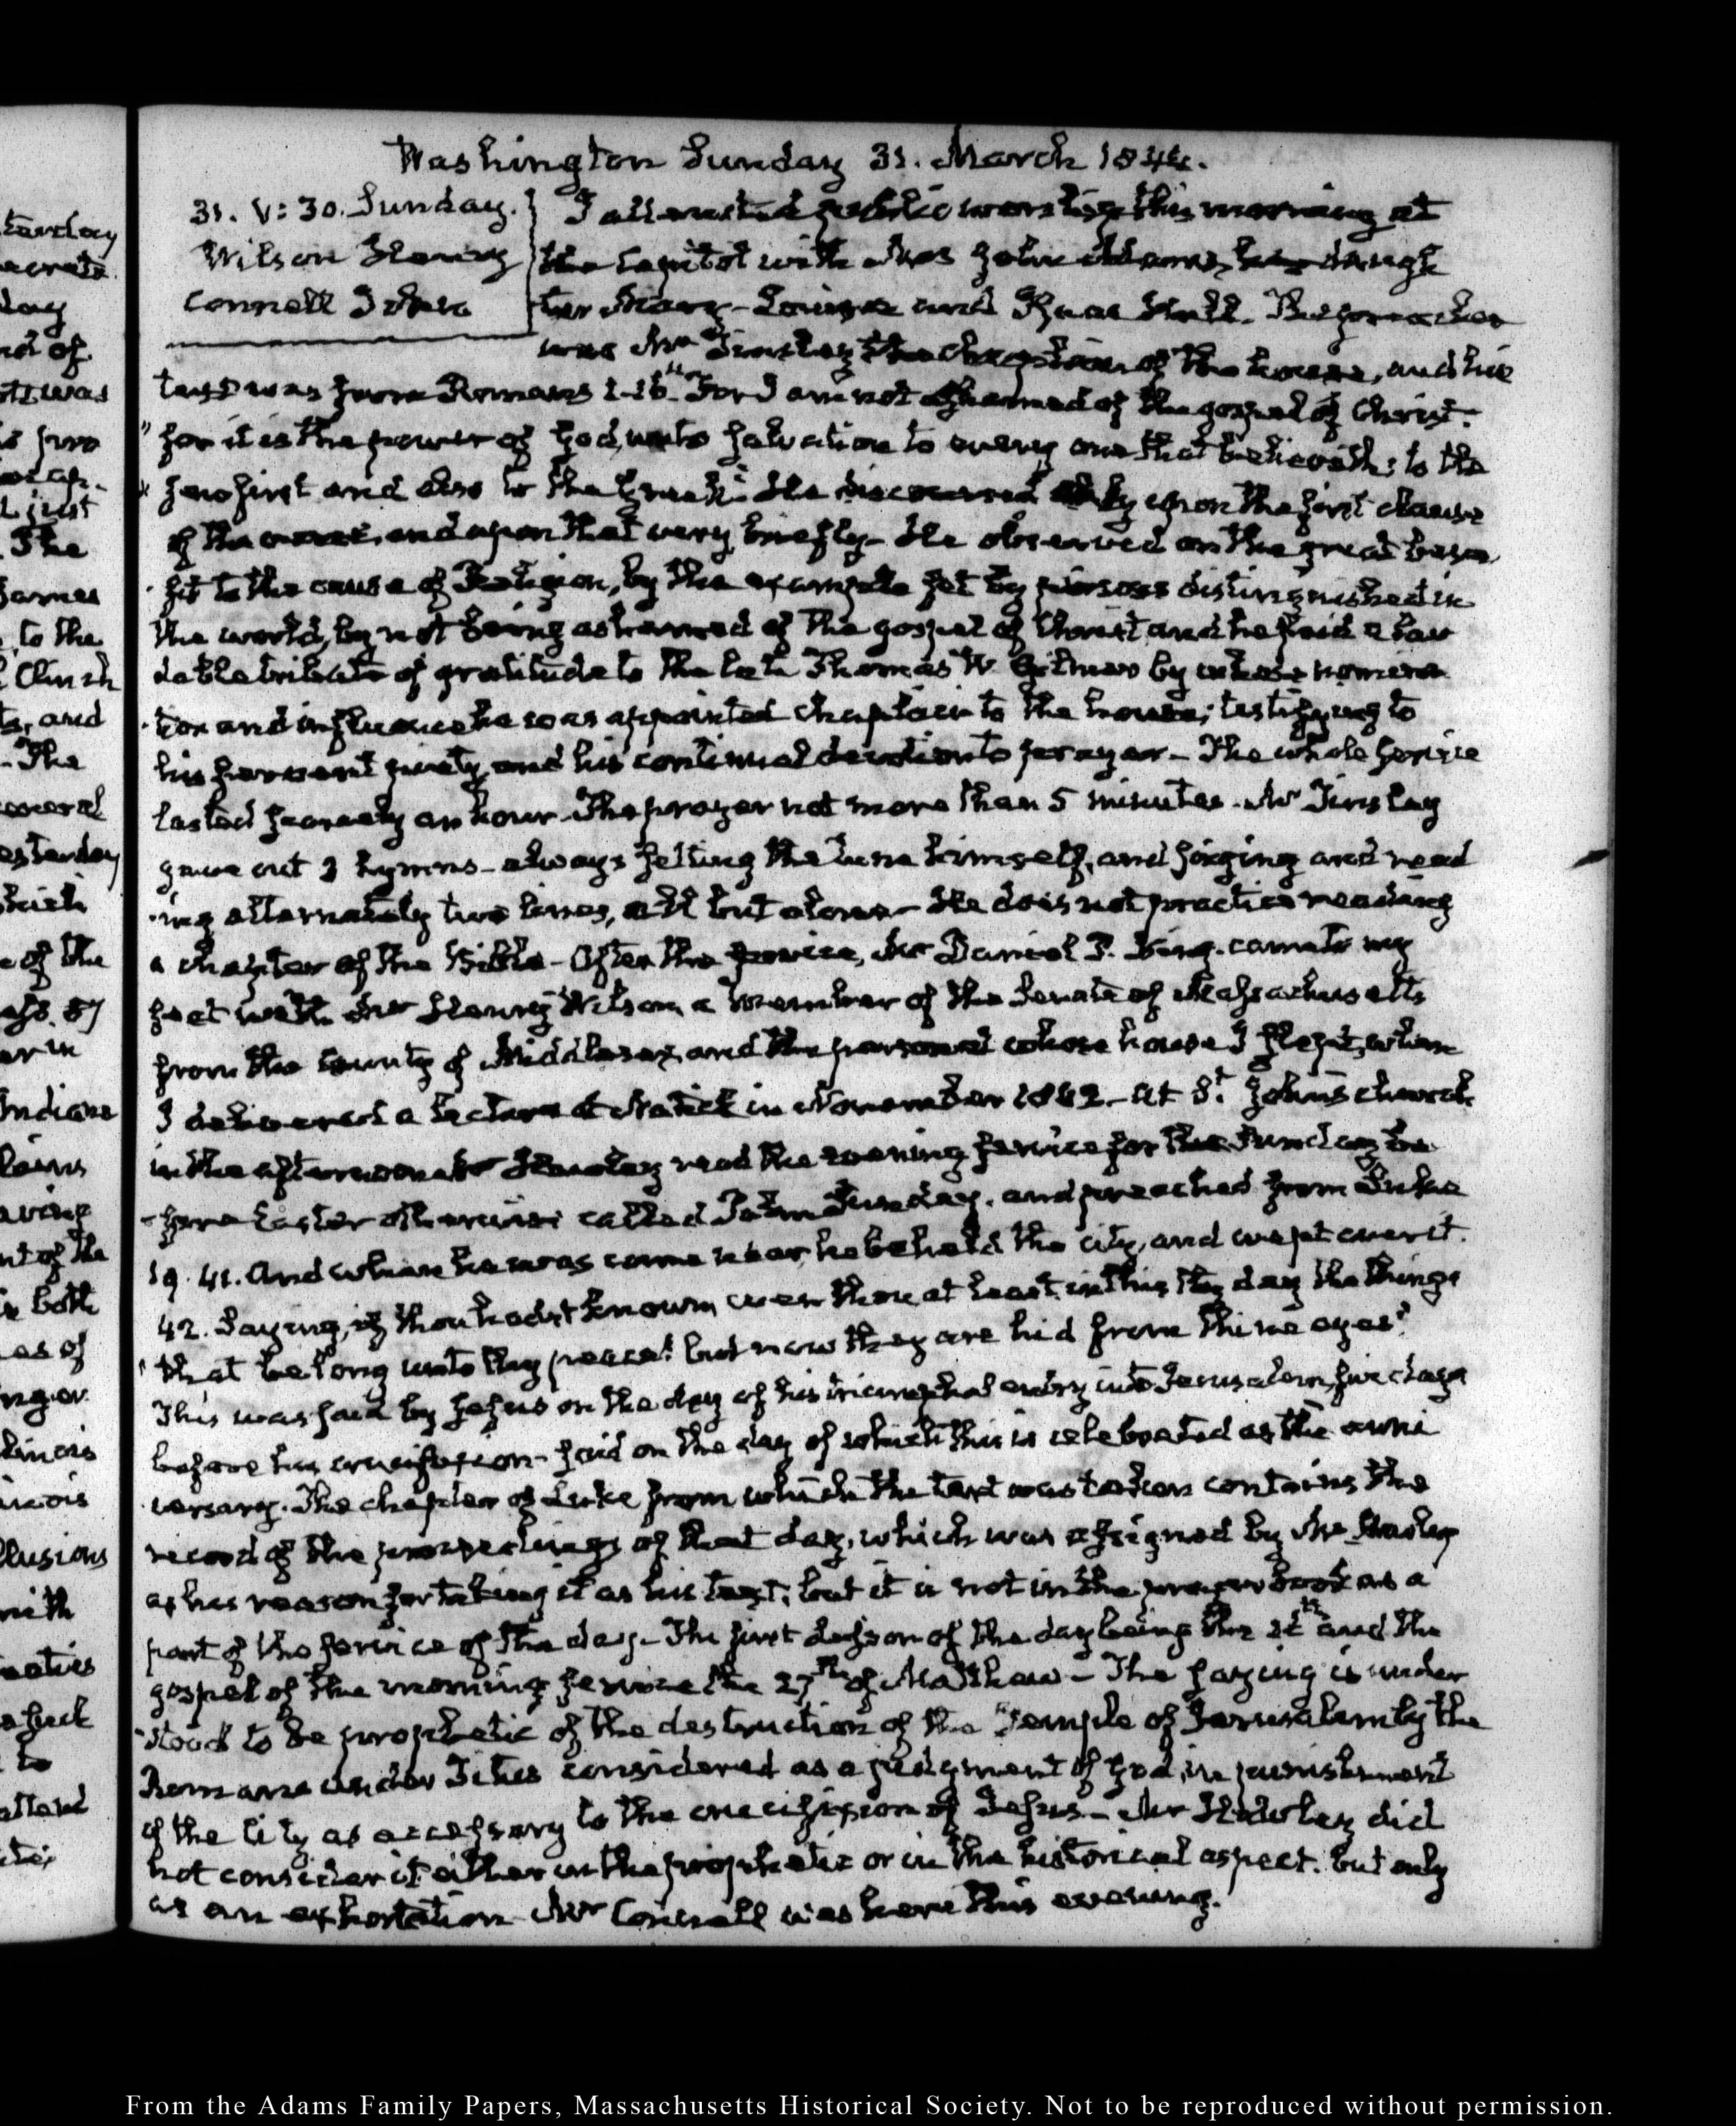 Washington Sunday 31. March 1844.
31. V:30. Sunday.
Wilson Henry
Connell John
I attended public worship this morning at
the Capitol with Mrs John Adams, her daugh
ter Mary-Louisa and Hall. The preacher
was Mr Tinsley the chaplain of the house, and his
text was from Romans 1.16. "For I am not ashamed of the gospel of Christ:
" for it is the power of God, unto salvation to every one that believeth; to the
" Jew first and also to the Greek." He discoursed only upon the first clause
of the and upon that very briefly- He observed on the great bene
fit to the cause of Religion, by the example set by persons distinguished in
the world, by not being ashamed of the gospel of Christ and he paid a lau
dable tribute of gratitude to the late Thomas W. Gilmer by whose nomina
tion and influence he was appointed chaplain to the house; testifying to
his fervent piety, and his continual devotion to prayer- The whole service
lasted scarcely an hour- The prayer not more than 5 minutes- Mr Tinsley
gave out 3 hymns- always setting the tune himself, and singing and read
ing alternately two lines, all but alone- He does not practice reading
a chapter of the Bible- After the service, Mr Daniel P. King. came to my
seat with Mr Henry Wilson, a member of the Senate of Massachusetts
from the County of Middlesex, and the person at whose house I slept, when
I delivered a lecture at Natick in November 1842- At St. John's church
in the afternoon Mr Hawley read the evening service for the Sunday be
fore Easter otherwise called Palm Sunday. and preached from Luke
19. 41. And when he was come near, he beheld the city, and wept over it.
42. Saying, if thou hadst known, even thou at least in this thy day the things
" that belong unto thy peace! but now they are hid from thine eyes"
This was said by Jesus on the day of his triumphal entry into Jerusalem, five days
before his crucifixion- said on the day of which this is celebrated as the anni
versary. The chapter of Luke from which the text was taken contains the
record of the proceedings of that day, which was assigned by Mr Hawley
as his reason for taking it as his text; but it is not in the prayer book as a
part of the service of the day- The first lesson of the day being the and the
gospel of the morning service the 27th of Matthew- The saying is under
stood to be prophetic of the destruction of the Temple of Jerusalem by the
Romans under Titus considered as a judgment of God, in punishment
of the City as accessary to the crucifixion of Jesus- Mr Hawley did
not consider it either in the prophetic or in the historical aspect. but only
as an exhortation- Mr Connell was here this evening.
tarday
day
nd of
it was
just
The
James
to the
and
The
several
esterday
of the
er in
Indiana
nt of the
both
as of
llusions
with
to
From the Adams Family Papers, Massachusetts Historical Society. Not to be reproduced without permission.